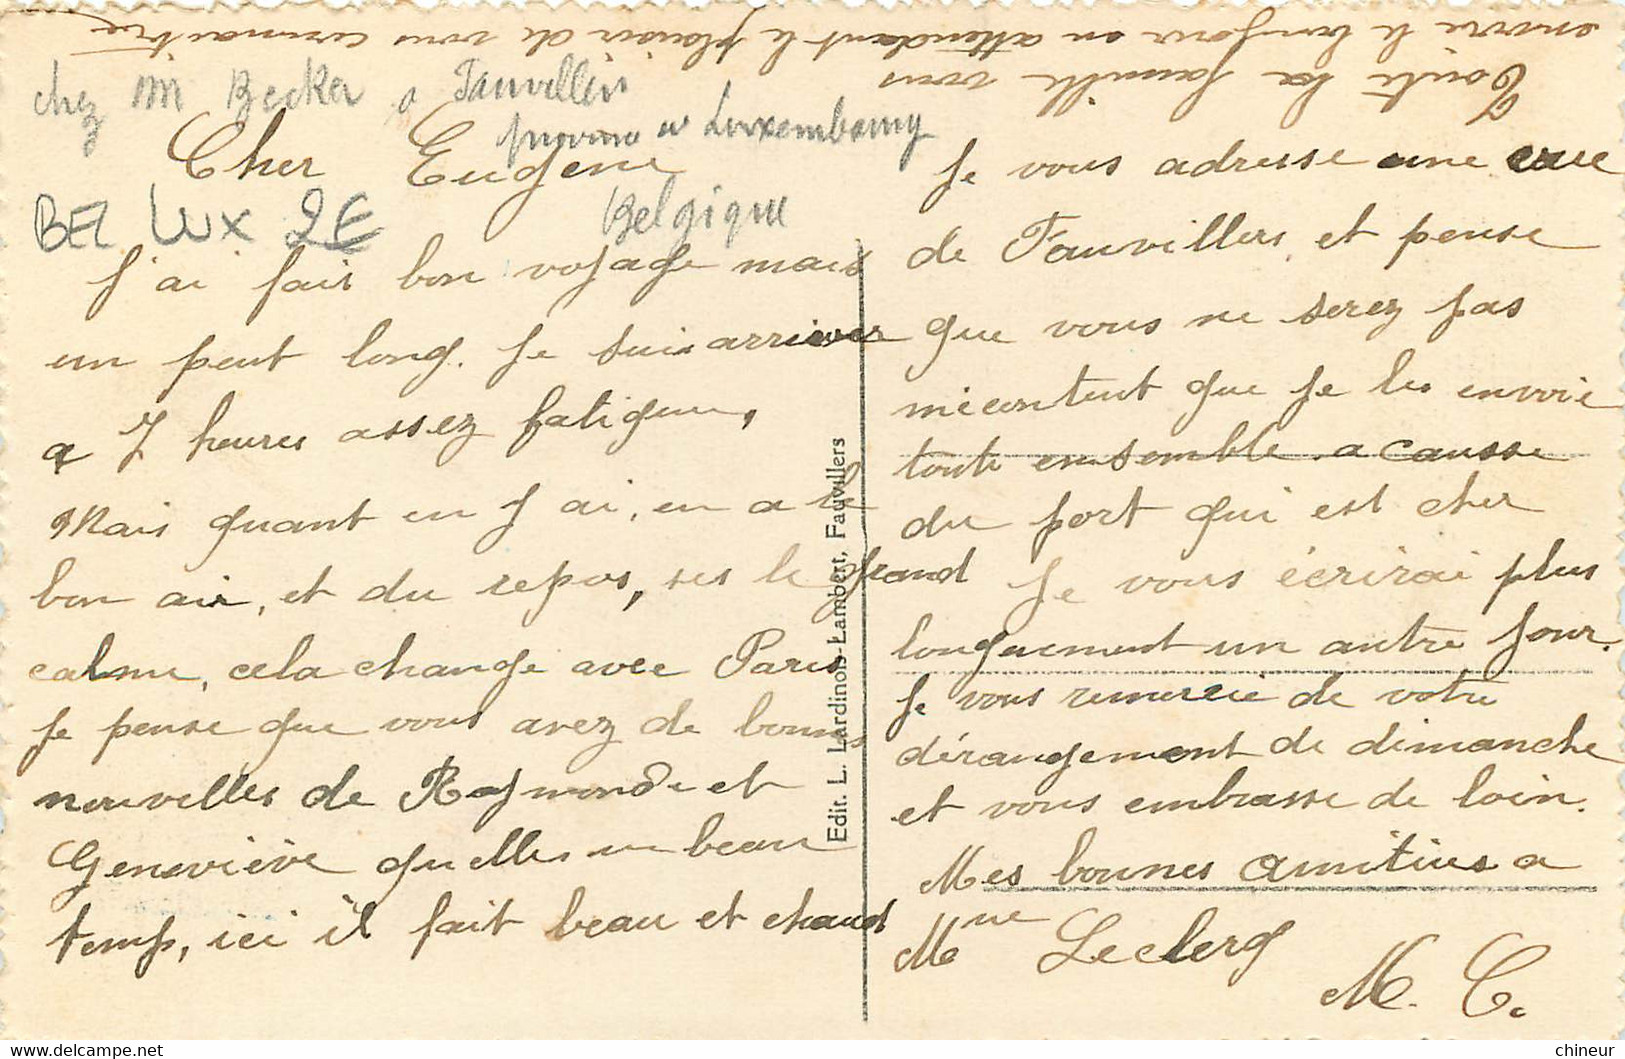 Toute la famille vous
envoie le bonjour en attendant le plaisir de vous connaitre
chez M Becker a Fauvillers
province Luxembourg
Belgique
BEL LUX 2€
Cher Eugene
J'ai fais bon voyage mais
un peut long. Je suis arriver
a 7 heures assez fatiguer,
Mais quant en j ai, en a le
bon air, et du repos, ses le grand
calme, cela change avec Paris
Je pense que vous avez de bonnes
nouvelles de Raymonde et
Geneviève quelles un beau
temps, ici il fait beau et chaud
Edit. L. Lardinois-Lambert, Fauvillers
Je vous adresse une vue
de Fauvillers, et pense
que vous ne serez pas
mécontent que je les envoie
toute ensemble a causse
du port qui est cher
Je vous écrirai plus
longuement un autre jour.
Je vous remercie de votre
dérangement de dimanche
et vous embrasse de loin.
Mes bonnes amitiées a
Mme Leclerq
M. C.
chineur